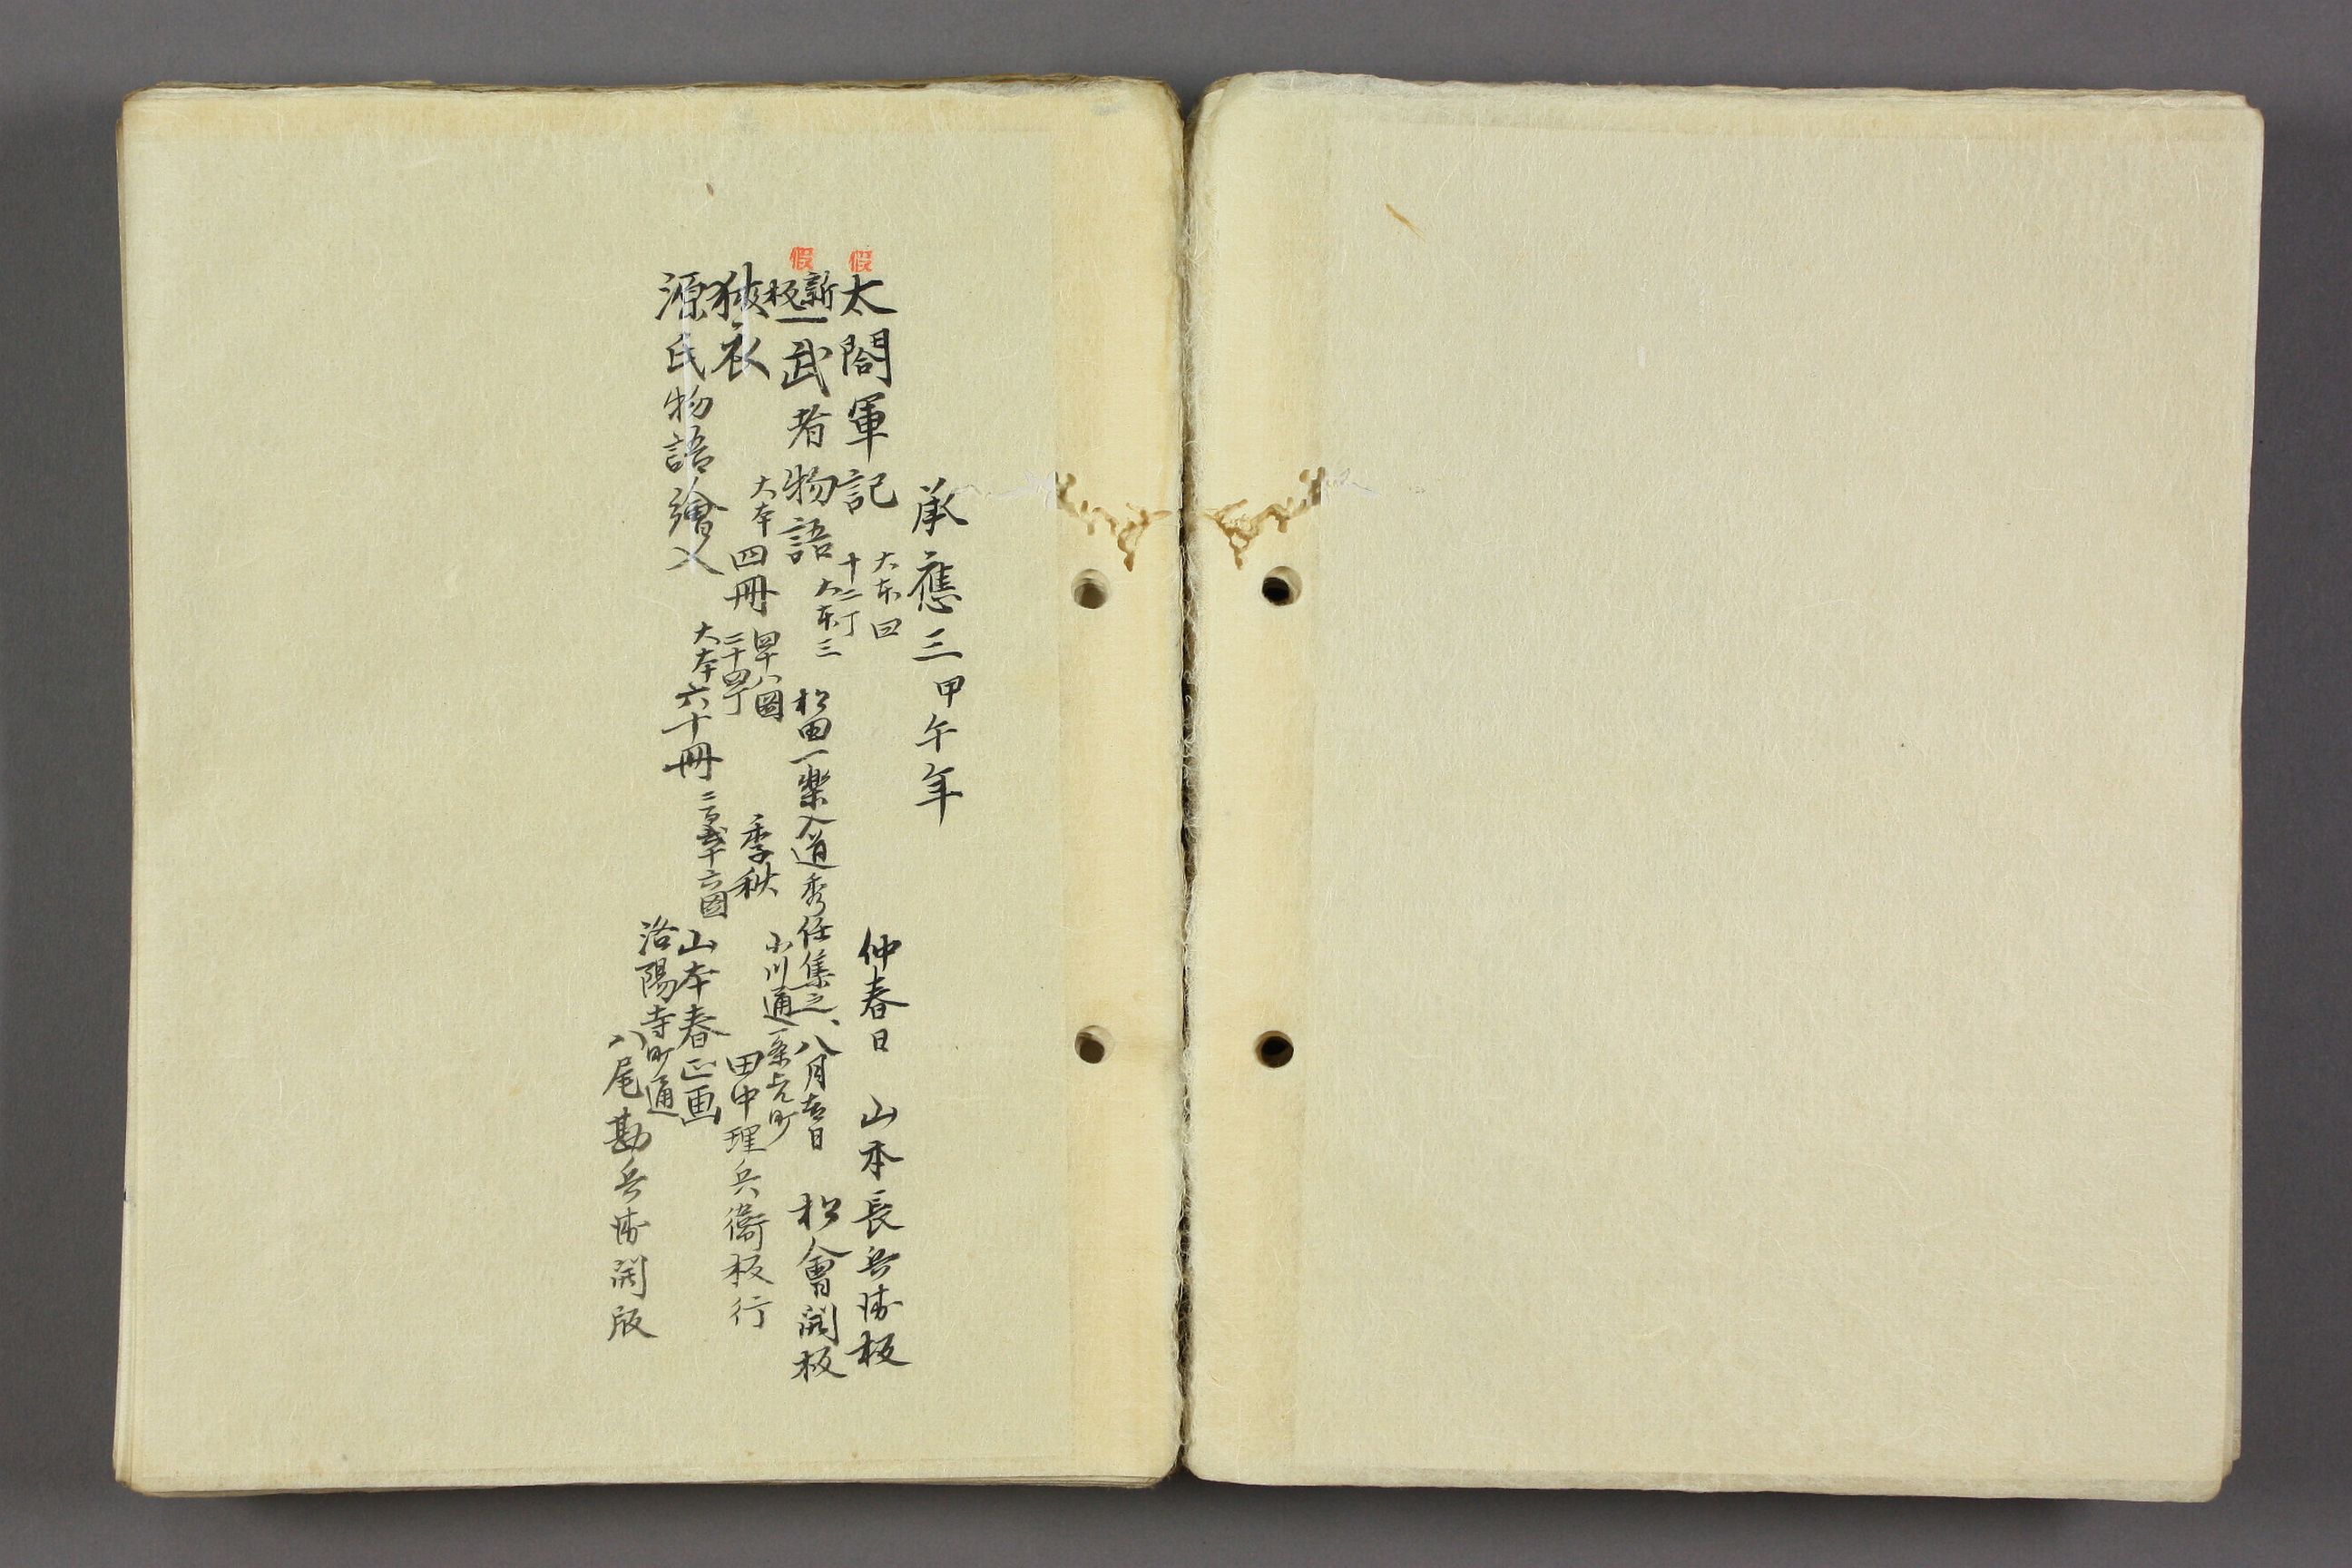 承應三甲午年
假
太閤軍記 大本曰 十二丁 仲春日 山本長兵衛板
假
新板一武者物語 大本三 松田一樂入道秀任集之、八月吉日 松會開板
狹衣 大本四冊 四十八圖 二十四丁 季秋 小川通一条上ル町 田中理兵衛板行
源氏物語繪入 大本六十冊 二百 十六図 山本春正画
洛陽寺町通
八尾勘兵衛開版